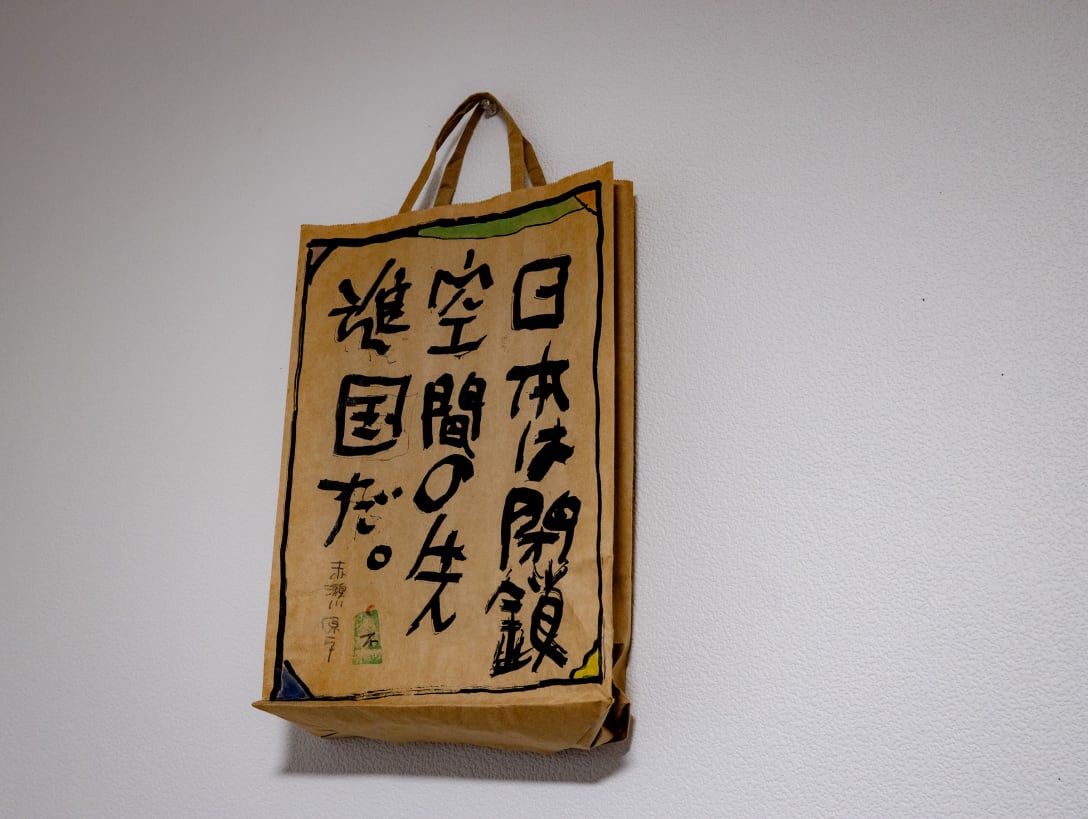 日本は閉鎖
空間の先
進国だ。
赤瀬川原平
石